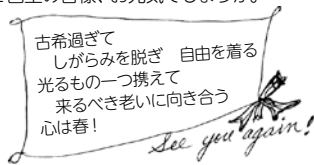 古希過ぎて
しがらみを脱ぎ 自由を着る
光るもの一つ携えて
来るべき老いに向き合う
心は春!
See you again!